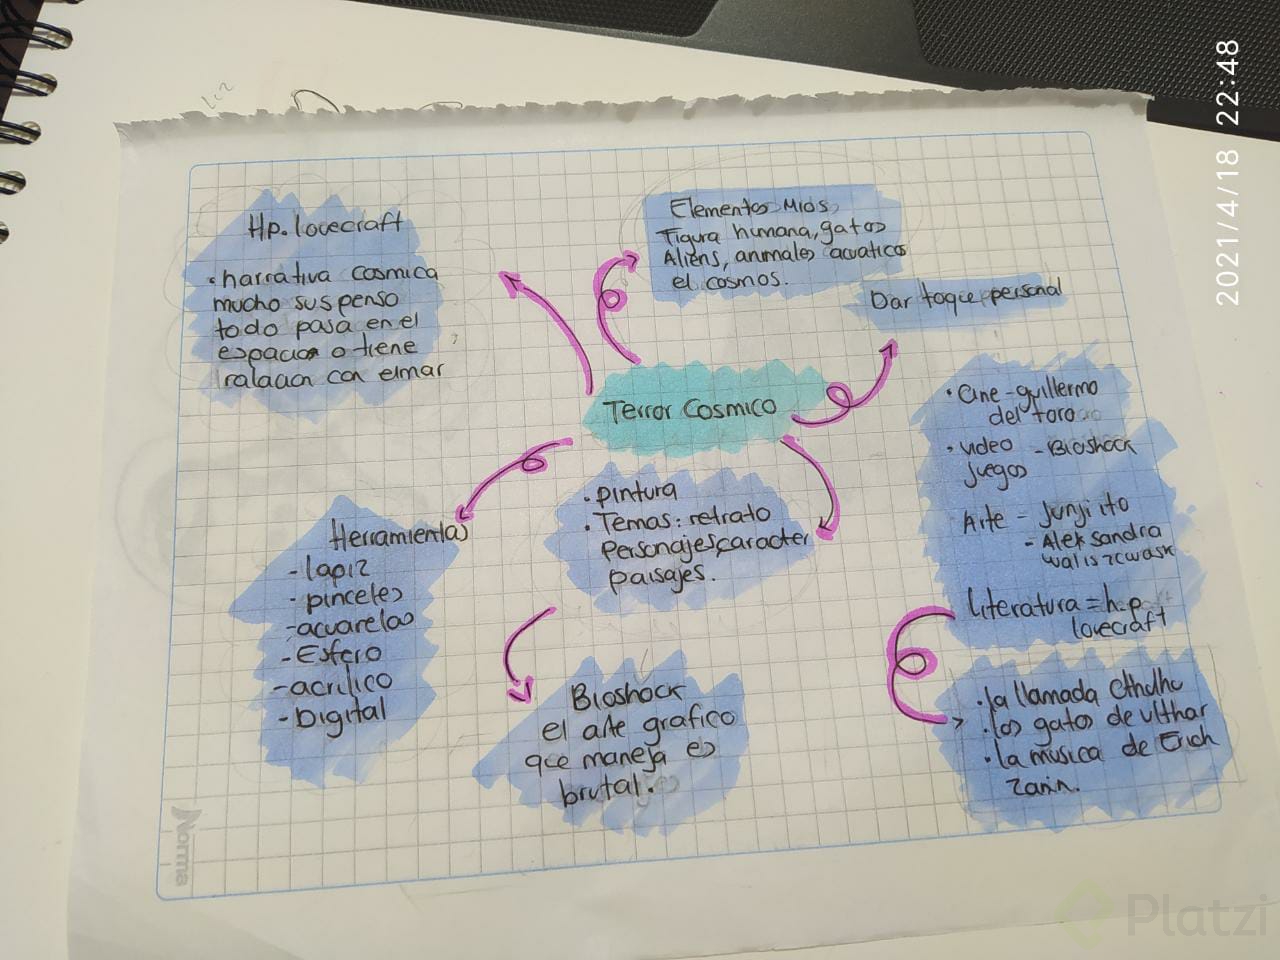 2021/4/18 22:48
Hp. lovecraft
• narrativa cosmica
mucho suspenso
todo pasa en el
espacio o tiene
ralacion con elmar
Elementos Mios,
Figura humana, gatos
Aliens, animales acuaticos
el cosmos.
Dar toque personal
Terror Cosmico
• Cine - guillermo
del toro
• video - Bioshock
juegos
Arte - Junji ito
- Aleksandra
waliszcwask
Literatura = h.p
lovecraft
• la llamada Cthulhu
• los gatos de ulthar
• la musica de Erich
Zann.
• pintura
• Temas: retrato
personajes, caracter
paisajes.
Herramientas
- lapiz
- pinceles
- acuarelas
- Esfero
- acrilico
- Digital
Bioshock
el arte grafico
que maneja es
brutal.
Norma
Platzi